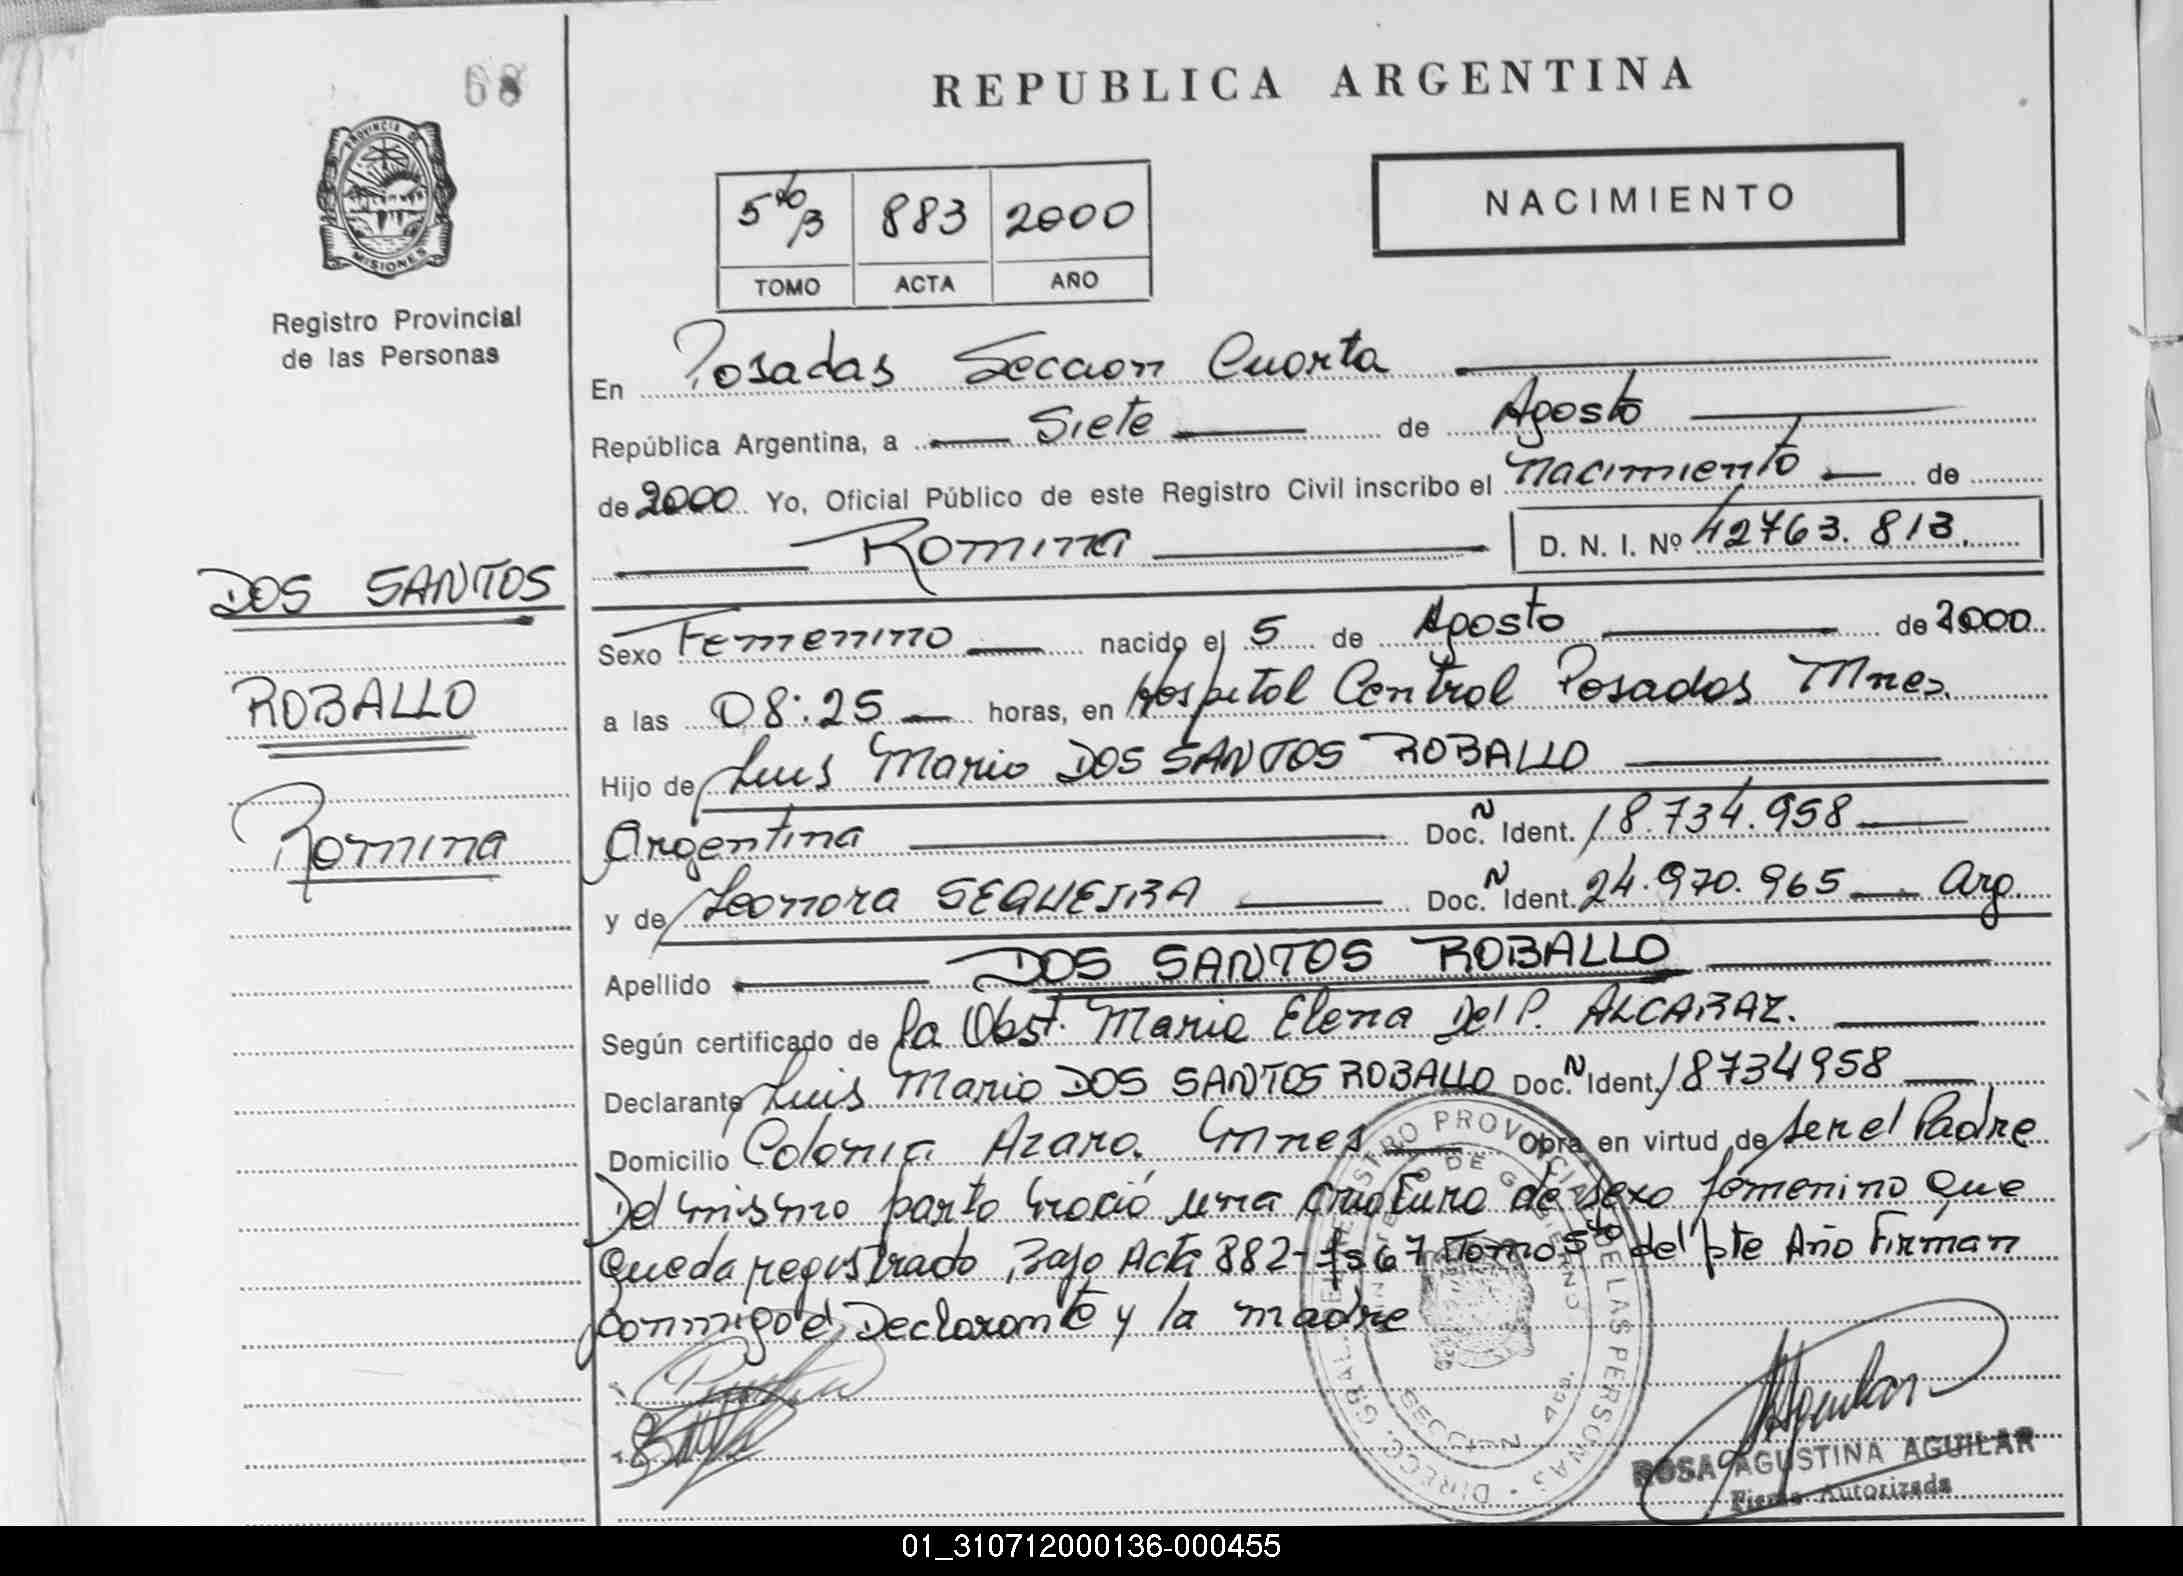 68
REPUBLICA ARGENTINA
PROVINCIA DE
MISIONES
Registro Provincial
de las Personas
5to/3 883 2000
TOMO ACTA AÑO
NACIMIENTO
En Posadas Seccion Cuarta
República Argentina, a Siete de Agosto
de 2000 Yo, Oficial Público de este Registro Civil inscribo el Nacimiento de
Romina D. N. I. Nº 42763.813.
DOS SANTOS
ROBALLO
Romina
Sexo Femenino nacido el 5 de Agosto de 2000
a las 08:25 horas, en Hospital Central Posadas Mnes.
Hijo de Luis Mario DOS SANTOS ROBALLO
Argentina Doc. N Ident. 18.734.958
y de Leonora SEQUEIRA Doc. N Ident. 24.970.965 Arg.
Apellido DOS SANTOS ROBALLO
Según certificado de la Obst. Maria Elena Del P. ALCARAZ.
Declarante Luis Mario DOS SANTOS ROBALLO Doc. N Ident. 18734958
Domicilio Colonia Azara. Mnes Obra en virtud de ser el Padre
Del mismo parto nació una criatura de sexo femenino que
queda registrado Bajo Acta 882-fs 67 Tomo 5to del pte Año Firman
conmigo el Declarante y la madre
DIRECC. GRAL. REGISTRO PROVINCIAL DE LAS PERSONAS
MINISTERIO DE GOBIERNO
SECCION 4ta.
ROSA AGUSTINA AGUILAR
Firma Autorizada
01_310712000136-000455